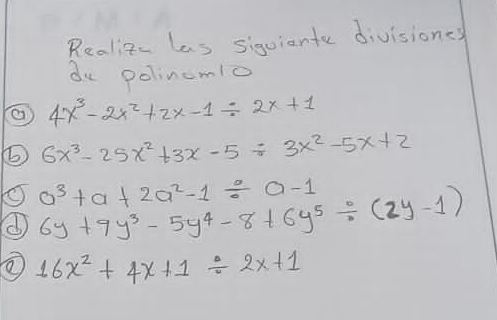 Realiza las siguiente divisiones
de polinomio
a) 4x³ - 2x² + 2x - 1 ÷ 2x + 1
b) 6x³ - 25x² + 3x - 5 ÷ 3x² - 5x + 2
c) a³ + a + 2a² - 1 ÷ a - 1
d) 6y + 9y³ - 5y⁴ - 8 + 6y⁵ ÷ (2y - 1)
e) 16x² + 4x + 1 ÷ 2x + 1